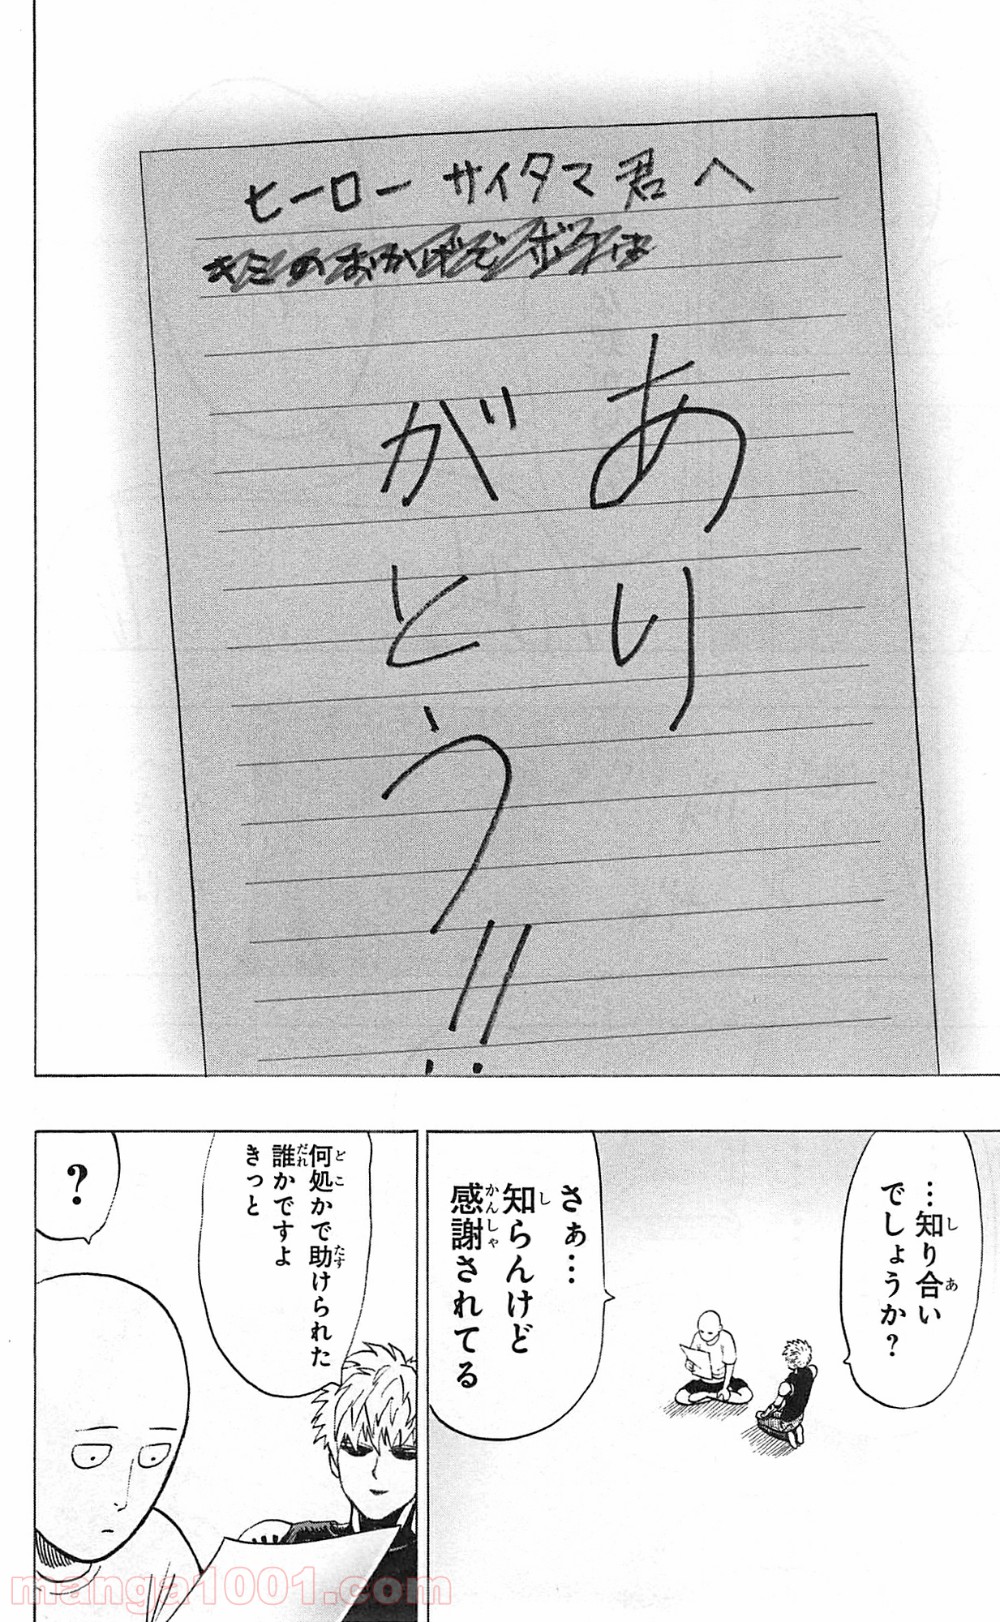 ヒーロー サイタマ君へ
きみのおかげでボクは
あり
がとう!!
…知り合い
でしょうか?
さぁ…
知らんけど
感謝されてる
何処かで助けられた
誰かですよ
きっと
?
manga1001.com